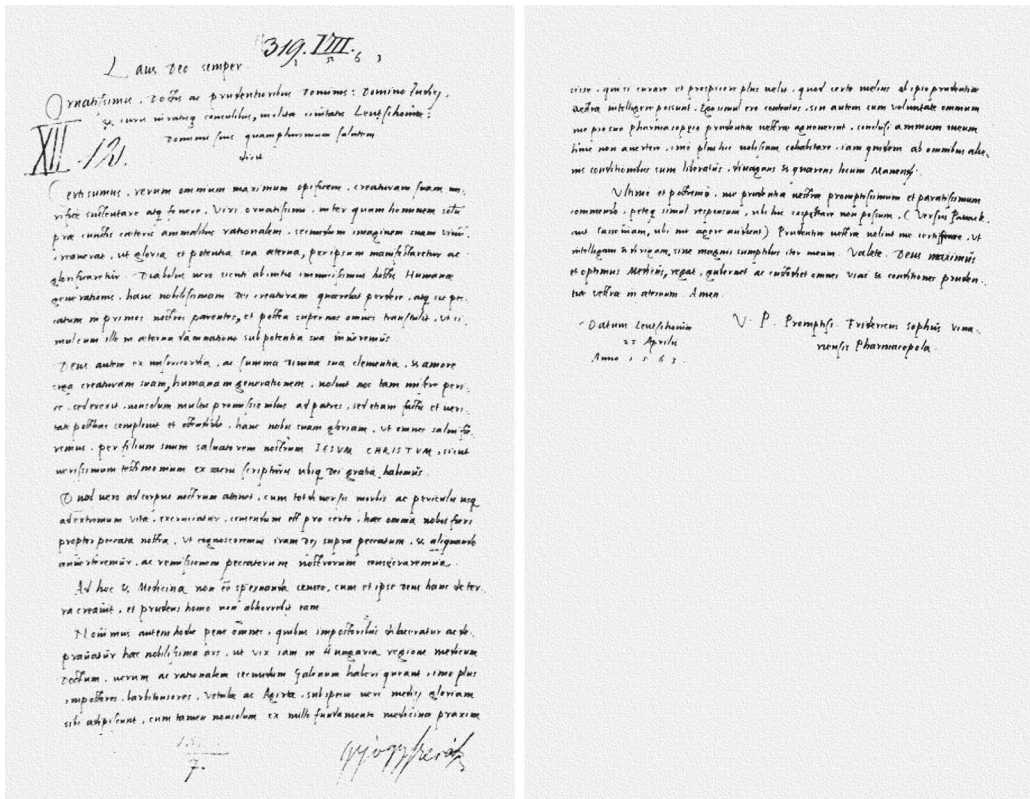 319. VIII.
1 5 6 3
Laus Deo semper.
Ornatissimis, Doctis ac prudentioribus Dominis: Domino Iudici,
XII 12.
&c iuratisq consulibus, civitatis Leutschoviæ:
Dominis suis quamplurimum salutem
dicit
Certissimus, verum omnium maximum opificem, creaturam suam mi-
rifice sustentare atq fovere, Viri ornatissimi, inter quam hominem solum
præ cunctis cæteris animalibus rationalem, secundum imaginem suam
creaverat, ut gloria et potentia sua æterna, per ipsum manifestaretur ac
glorificaretur. Diabolus vero sicuti ab initio hostis Humanæ
generationis, hanc nobilissimam Dei creaturam quærebat perdere, atq
catum in primos nostros parentes, et postea supernos omnes transtulit, ut
mulcum ille in æterna damnationis sub potentia sua
Deus autem ex misericordia, ac summa divina sua clementia, & amore
erga creaturam suam, humanam generationem, noluit nos tam misere peri-
re, sed erexit, non solum multis promissionibus ad patres, sed etiam factis et veri-
tate postea complevit et ostendit, hanc nobis suam gloriam, ut omnes salvi fie-
remus, per filium suum salvatorem nostrum IESUM CHRISTUM, sicut
verissimum testimonium ex sacris scripturis ubiq Dei gratia habemus.
Quod vero ad corpus nostrum attinet, cum tot diversis morbis ac periculis usq
ad extremum vitæ, excruciatur, censendum est pro certo, hæc omnia nobis fieri
propter peccata nostra, ut cognosceremus iram Dei supra peccatum, & aliquando
ac remissionem peccatorum nostrorum consequeremur.
Ad hoc & Medicina non est spernanda censeo, cum et ipse Deus hanc de ter-
ra creavit, et prudens homo non abhorrebit eam.
Novimus autem hodie pene omnes, quibus impostoribus dilaceratur ac de-
pravatur hæc nobilissima ars, ut vix iam in Hungaria regione medicum
Doctum, verum ac rationalem secundum Galenum haberi queant, imo plus
impostores, barbitonsores, vetulæ ac Agirtæ, sub specie veri medici gloriam
sibi adipiscunt, cum tamen non solum ex nullo fundamento medicinæ praxim
7.
scisse, qui si curare et prospicere plus velit, quod certo melius ab ipso prudentiæ
vestræ intelligere possunt. Quo simul ero contentus, sin autem cum voluntate omnium
me pro suo pharmacopeo prudentiæ vestræ agnoverint, conclusi animum meum
hinc non avertere, imo plus hic vobiscum cohabitare, iam quidem ab omnibus alie-
nis conditionibus sum liberatus, & quærens locum Manendi.
Ultimo et postremo, me prudentiæ vestræ promptissimum et paratissimum
commendo, petoq simul responsum, ubi hic non possum, (Versus
aut Cassoviam, ubi me agere audent) Prudentiæ vestræ velint me certificare, ut
intelligam & dirigam, sine magnis sumptibus iter meum. Valete. Deus maximus
et optimus Medicus, regat, gubernet ac custodiat omnes vias & conditiones pruden-
tiæ vestræ in æternum. Amen.
Datum Leutschoviæ
25 Aprilis
Anno 1563.
V. P. Promptiss. Fridericus Sophius
Pharmacopola.